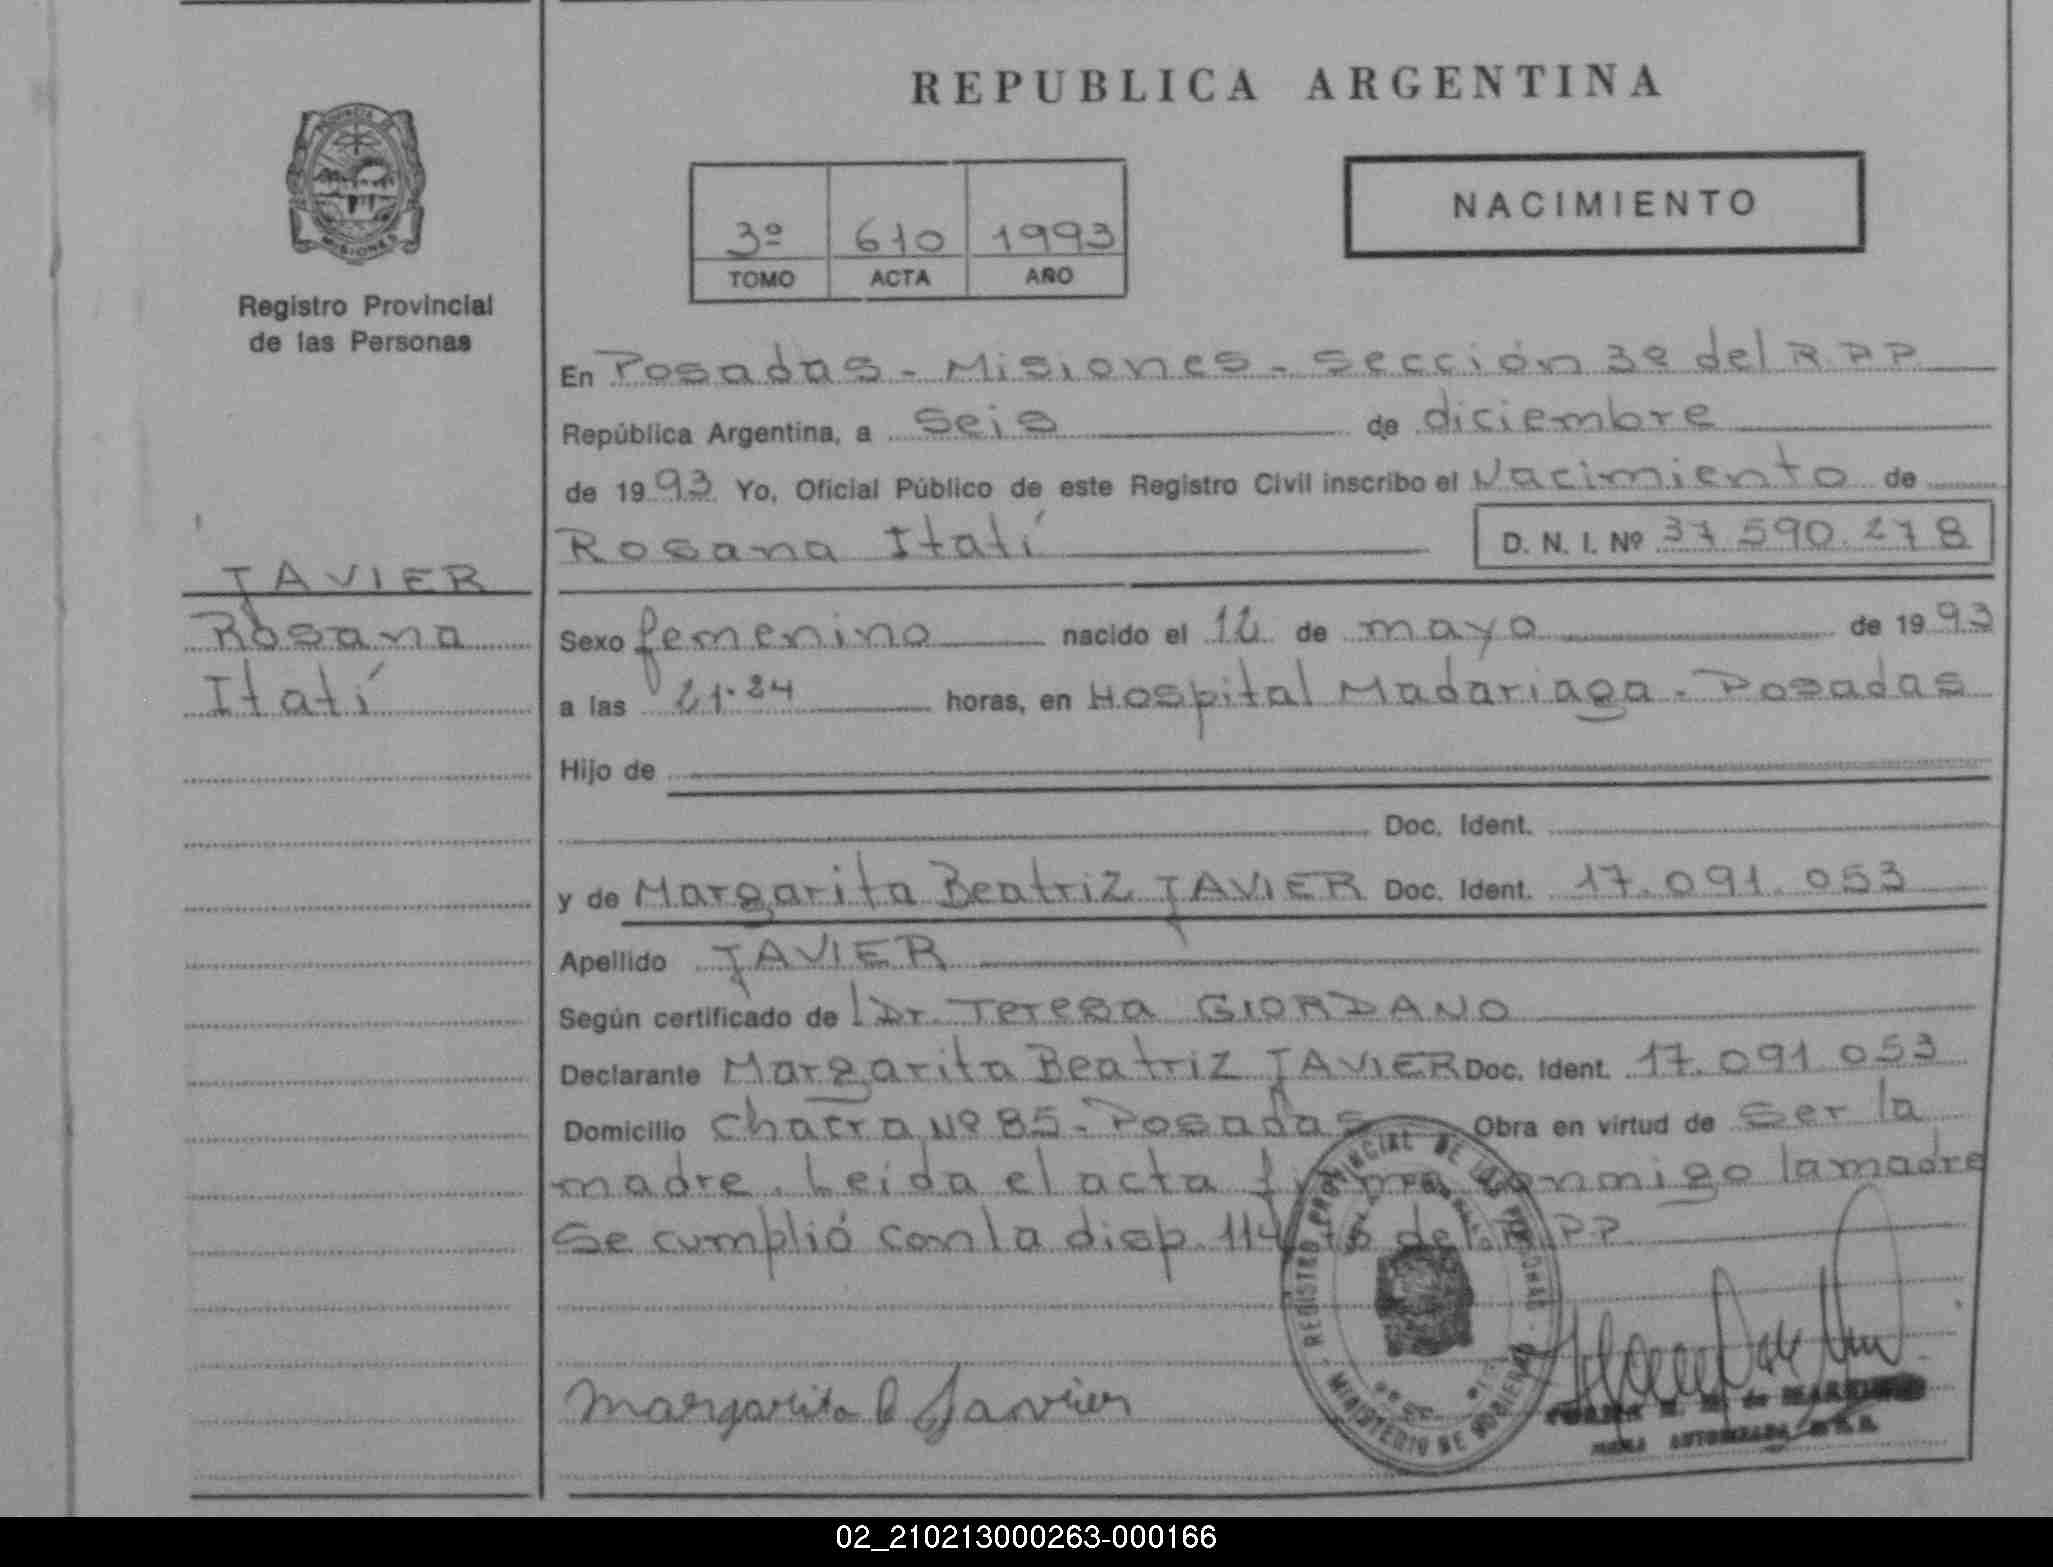 REPUBLICA ARGENTINA
NACIMIENTO
3º 610 1993
TOMO ACTA AÑO
PROVINCIA DE
MISIONES
Registro Provincial
de las Personas
JAVIER
Rosana
Itatí
En Posadas - Misiones - Sección 3º del R P P
República Argentina, a Seis de diciembre
de 1993 Yo, Oficial Público de este Registro Civil inscribo el Nacimiento de
Rosana Itatí D. N. I. Nº 37.590.278
Sexo femenino nacido el 12 de mayo de 1993
a las 21.24 horas, en Hospital Madariaga - Posadas
Hijo de
Doc. Ident.
y de Margarita Beatriz JAVIER Doc. Ident. 17.091.053
Apellido JAVIER
Según certificado de Dr. Teresa GIORDANO
Declarante Margarita Beatriz JAVIER Doc. Ident. 17.091.053
Domicilio Chacra Nº 85 - Posadas Obra en virtud de Ser la
madre. Leída el acta firma conmigo la madre
Se cumplió con la disp. 114/ del R P P
REGISTRO PROVINCIAL DE LAS PERSONAS
MINISTERIO DE GOBIERNO
Margarita B Javier
FIRMA AUTORIZADA
02_210213000263-000166